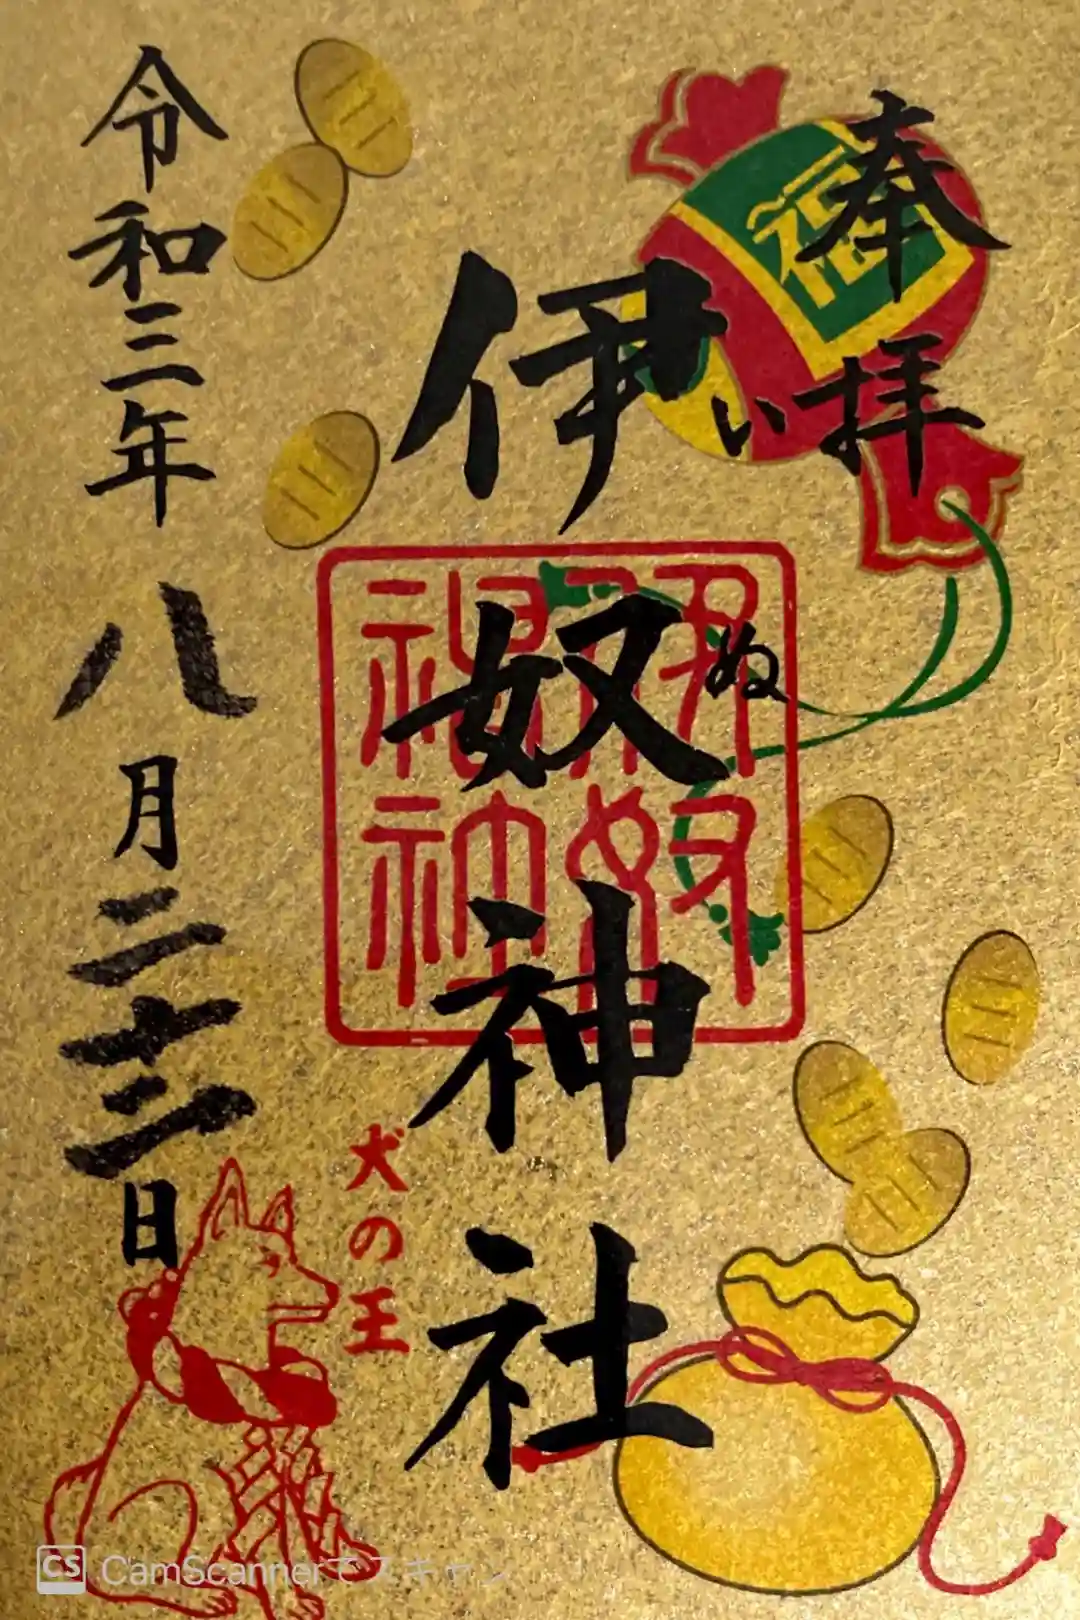 奉拝
福
いぬ
伊奴神社
犬の王
令和三年八月二十三日
CS CamScannerでスキャン